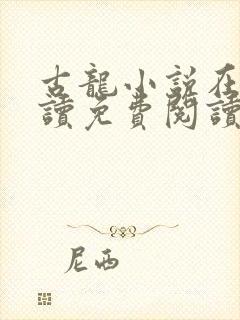 古龍小說在
讀免費閱讀
尼西